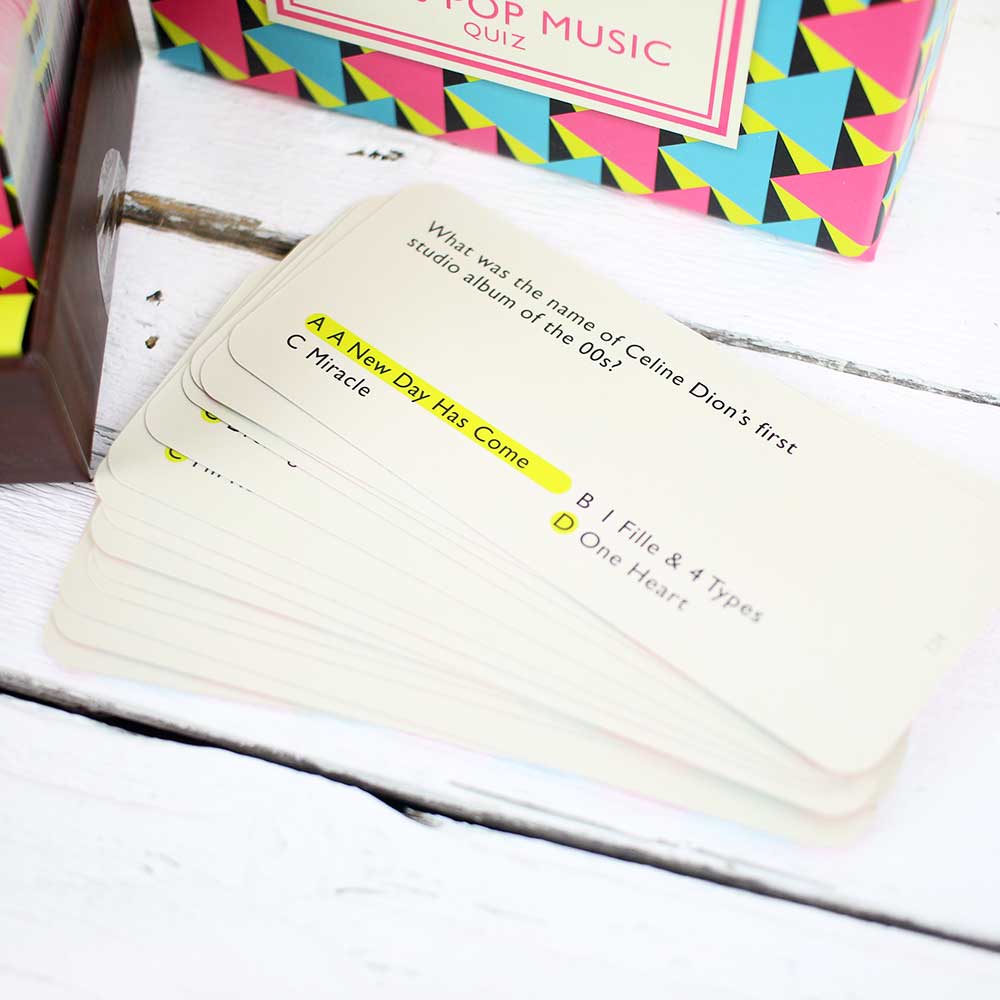 POP MUSIC
QUIZ
What was the name of Celine Dion's first
studio album of the 00s?
A A New Day Has Come
C Miracle
B 1 Fille & 4 Types
D One Heart
C